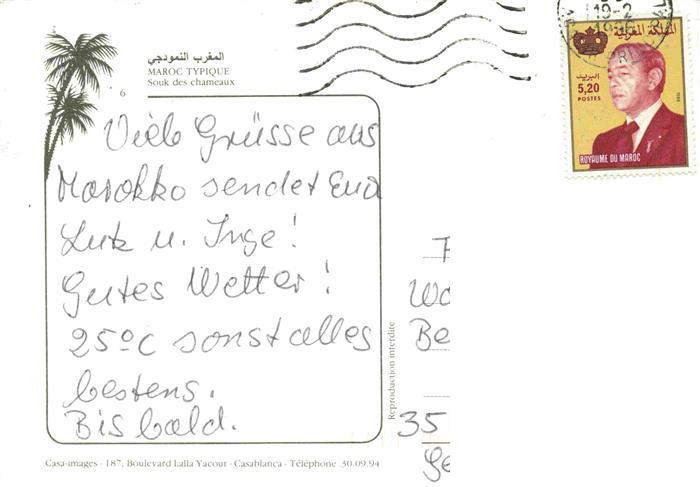 المغرب النموذجي
MAROC TYPIQUE
Souk des chameaux
6
Viele Grüsse aus
Marokko sendet Euch
Lutz u. Inge!
Gutes Wetter!
25°C sonst alles
bestens.
Bis bald.
Casa-images - 187, Boulevard Lalla Yacout - Casablanca - Téléphone 30.09.94
Reproduction interdite
35
19-2
المملكة المغربية
البريد
5,20
POSTES
ROYAUME DU MAROC